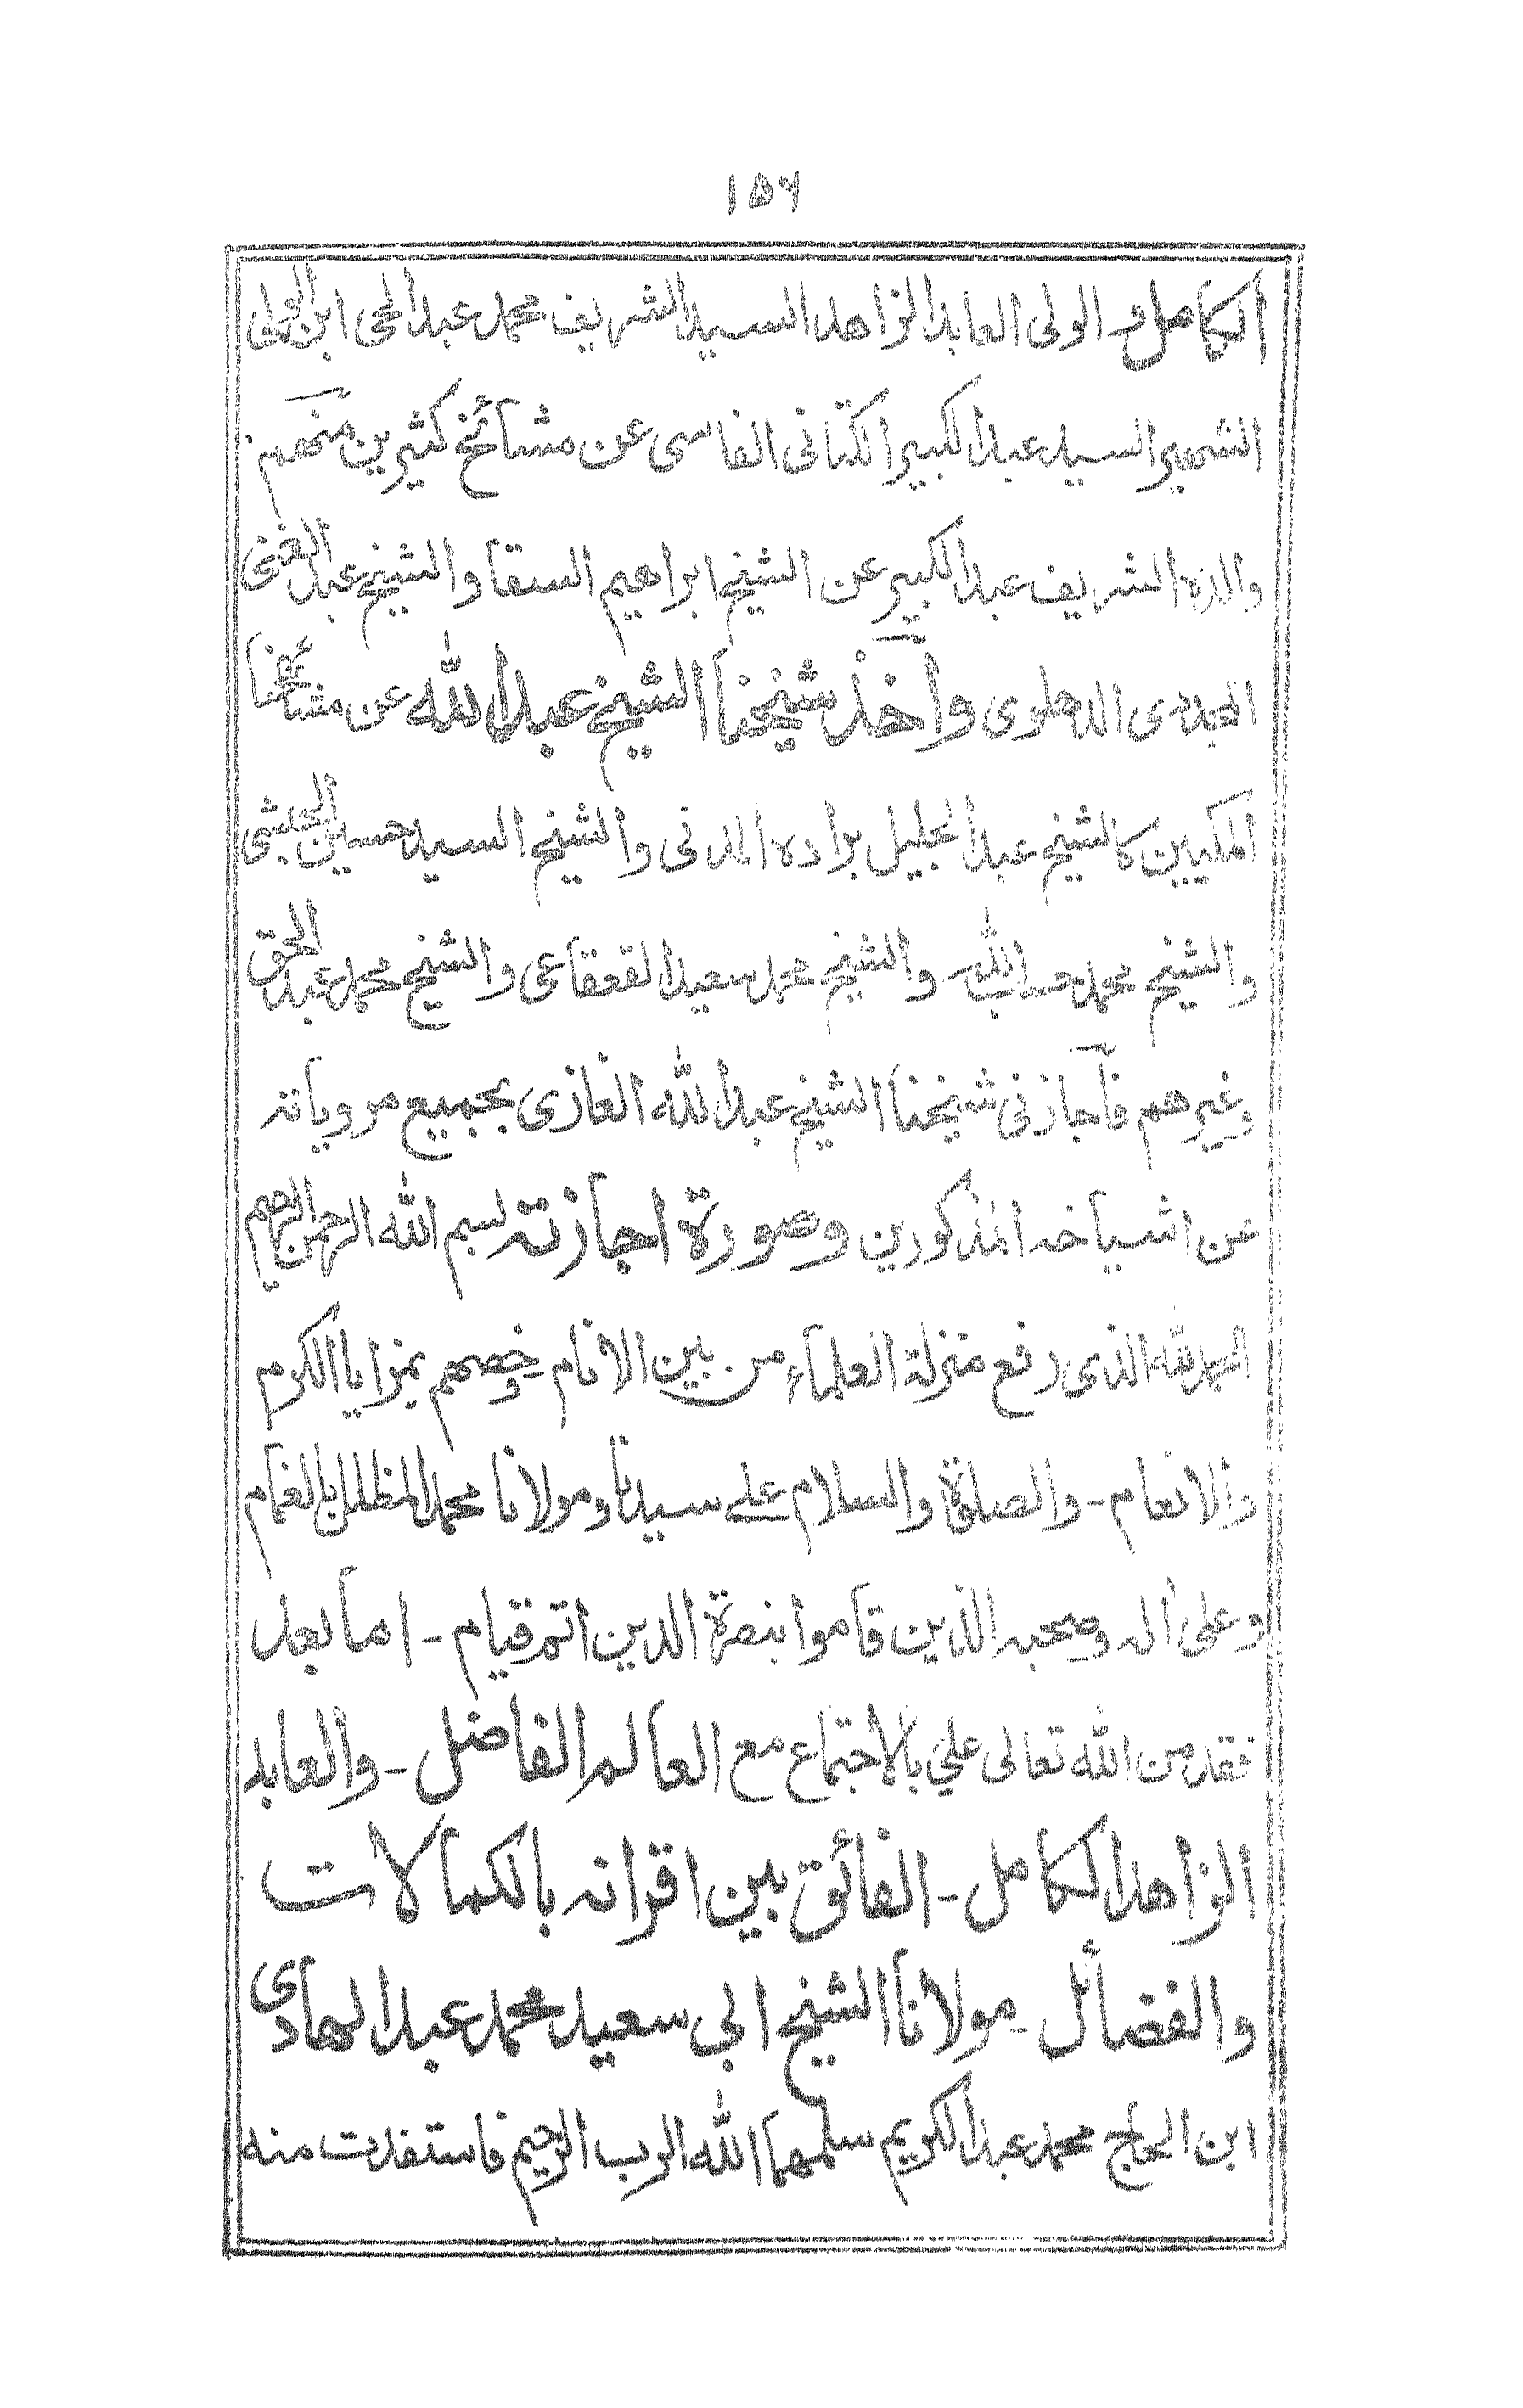 ١٥٦
الكامل و الولى العابد الزاهد السيد الشريف محمد عبد الحى ابن الولى
الشهير السيد عبد الكبير الكتانى الفاسى عن مشائخ كثيرين منهم
والده الشريف عبد الكبير عن الشيخ ابراهيم السقا والشيخ عبد الغنى
المجددى الدهلوى وأخذ شيخنا الشيخ عبد الله عن مشائخنا
المكيين كالشيخ عبد الجليل براده المدنى والشيخ السيد حسين الحبشى
والشيخ محمد حسب الله والشيخ محمد سعيد القعقاعى والشيخ محمد عبد الحق
وغيرهم فأجازنى شيخنا الشيخ عبد الله الغازى بجميع مروياته
عن اشياخه المذكورين وصورة اجازته بسم الله الرحمن الرحيم
الحمد لله الذى رفع منزلة العلماء من بين الانام وخصهم بمزايا الكرم
والانعام - والصلوة والسلام على سيدنا ومولانا محمد المظلل بالغمام
وعلى اله وصحبه الذين قاموا بنصرة الدين اتم قيام - اما بعد
فقد من الله تعالى علي بالاجتماع مع العالم الفاضل - والعابد
الزاهد الكامل - الفائق بين اقرانه بالكمالات
والفضائل - مولانا الشيخ ابى سعيد محمد عبد الهادى
ابن الحاج محمد عبد الكريم سلمهما الله الرب الرحيم فاستفدت منه